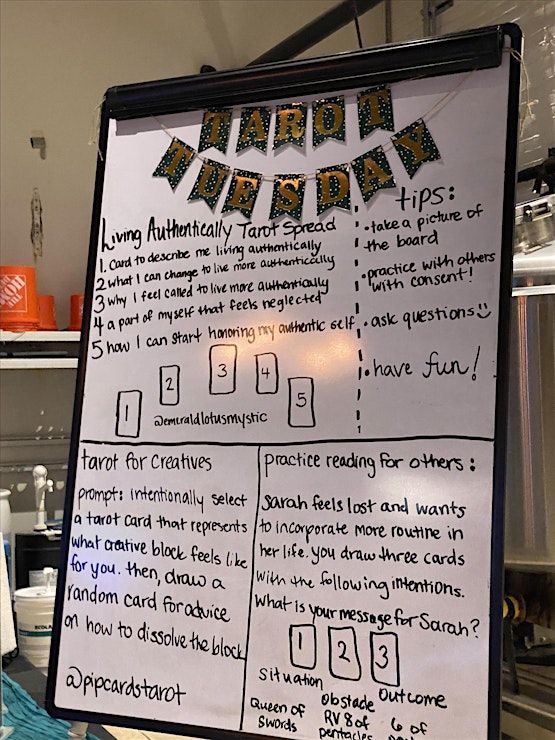 TAROT
TUESDAY
Living Authentically Tarot Spread
1. Card to describe me living authentically
2 what I can change to live more authentically
3 why I feel called to live more authentically
4 a part of myself that feels neglected
5 how I can start honoring my authentic self
1 2 3 4 5
@emeraldlotusmystic
tips:
• take a picture of
the board
• practice with others
with consent!
• ask questions
• have fun!
tarot for Creatives
prompt: intentionally select
a tarot card that represents
what creative block feels like
for you. then, draw a
random card for advice
on how to dissolve the block
@pipcardstarot
practice reading for others:
Sarah feels lost and wants
to incorporate more routine in
her life. you draw three cards
with the following intentions.
What is your message for Sarah?
1 2 3
Situation
Obstacle
Outcome
Queen of
Swords
RV 8 of
pentacles
6 of
ECOLAB